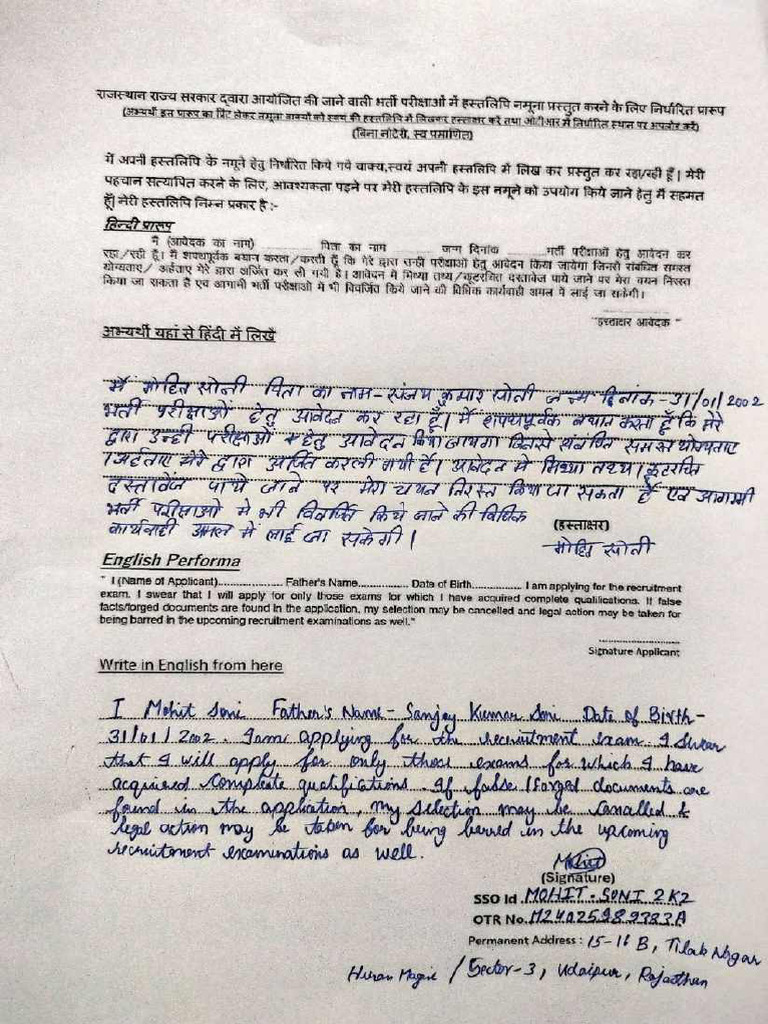 राजस्थान राज्य सरकार द्वारा आयोजित की जाने वाली भर्ती परीक्षाओं में हस्तलिपि नमूना प्रस्तुत करने के लिए निर्धारित प्रारूप
(अभ्यर्थी इस प्रारूप का प्रिंट लेकर नमूना वाक्यों को स्वयं की हस्तलिपि में लिखकर हस्ताक्षर करें तथा ओटीआर में निर्धारित स्थान पर अपलोड करें)
(बिना नोटेरी, स्व प्रमाणित)
में अपनी हस्तलिपि के नमूने हेतु निर्धारित किये गये वाक्य,स्वयं अपनी हस्तलिपि में लिख कर प्रस्तुत कर रहा/रही हूँ | मेरी
पहचान सत्यापित करने के लिए, आवश्यकता पड़ने पर मेरी हस्तलिपि के इस नमूने को उपयोग किये जाने हेतु में सहमत
हूँ| मेरी हस्तलिपि निम्न प्रकार है :-
हिन्दी प्रारूप
मैं (आवेदक का नाम) ............ पिता का नाम ............ जन्म दिनांक ............भर्ती परीक्षाओं हेतु आवेदन कर
रहा/रही हूँ। मैं शपथपूर्वक बयान करता/करती हूँ कि मेरे द्वारा उन्ही परीक्षाओं हेतु आवेदन किया जायेगा जिनसे संबंधित समस्त
योग्यताए/ अर्हताए मेरे द्वारा अर्जित कर ली गयी है। आवेदन में मिथ्या तथ्य/कूटरचित दस्तावेज पाये जाने पर मेरा चयन निरस्त
किया जा सकता है एवं आगामी भर्ती परीक्षाओं में भी विवर्जित किये जाने की विधिक कार्यवाही अमल में लाई जा सकेगी।
"हस्ताक्षर आवेदक "
अभ्यर्थी यहां से हिंदी में लिखें
मैं मोहित सोनी पिता का नाम- संजय कुमार सोनी जन्म दिनांक -31/01/2002
भर्ती परीक्षाओं हेतु आवेदन कर रहा हूँ। मैं शपथपूर्वक बयान करता हूँ कि मेरे
द्वारा उन्ही परीक्षाओं हेतु आवेदन किया जायेगा जिनसे संबंधित समस्त योग्यताए
/अर्हताए मेरे द्वारा अर्जित करली गयी है। आवेदन मे मिथ्या तथ्य/ कूटरचित
दस्तावेज पाये जाने पर मेरा चयन निरस्त किया जा सकता है एवं आगामी
भर्ती परीक्षाओं मे भी विवर्जित किये जाने की विधिक
कार्यवाही अमल में लाई जा सकेगी।
(हस्ताक्षर)
मोहित सोनी
English Performa
" I (Name of Applicant)................... Father's Name............... Date of Birth............... I am applying for the recruitment
exam. I swear that I will apply for only those exams for which I have acquired complete qualifications. If false
facts/forged documents are found in the application, my selection may be cancelled and legal action may be taken for
being barred in the upcoming recruitment examinations as well."
Signature Applicant
Write in English from here
I Mohit Soni Father's Name- Sanjay Kumar Soni Date of Birth-
31/01/2002. I am applying for the recruitment exam. I Swear
that I will apply for only those exams for which I have
acquired complete qualifications. If false /Forged documents are
found in the application, my selection may be Canalled &
legal action may be taken for being berred in the upcoming
recruitonent examinations as well.
Mohit
(Signature)
SSO Id .MOHIT.SONI 2K2
OTR No.M24025989383A
Permanent Address : 15-16 B, Tilak Nagar
Hiran Magri / Sector-3, Udaipur, Rajasthan